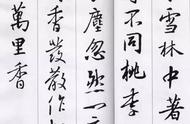 雪林中著
不同桃李
塵忽然一
香發散作
萬里香